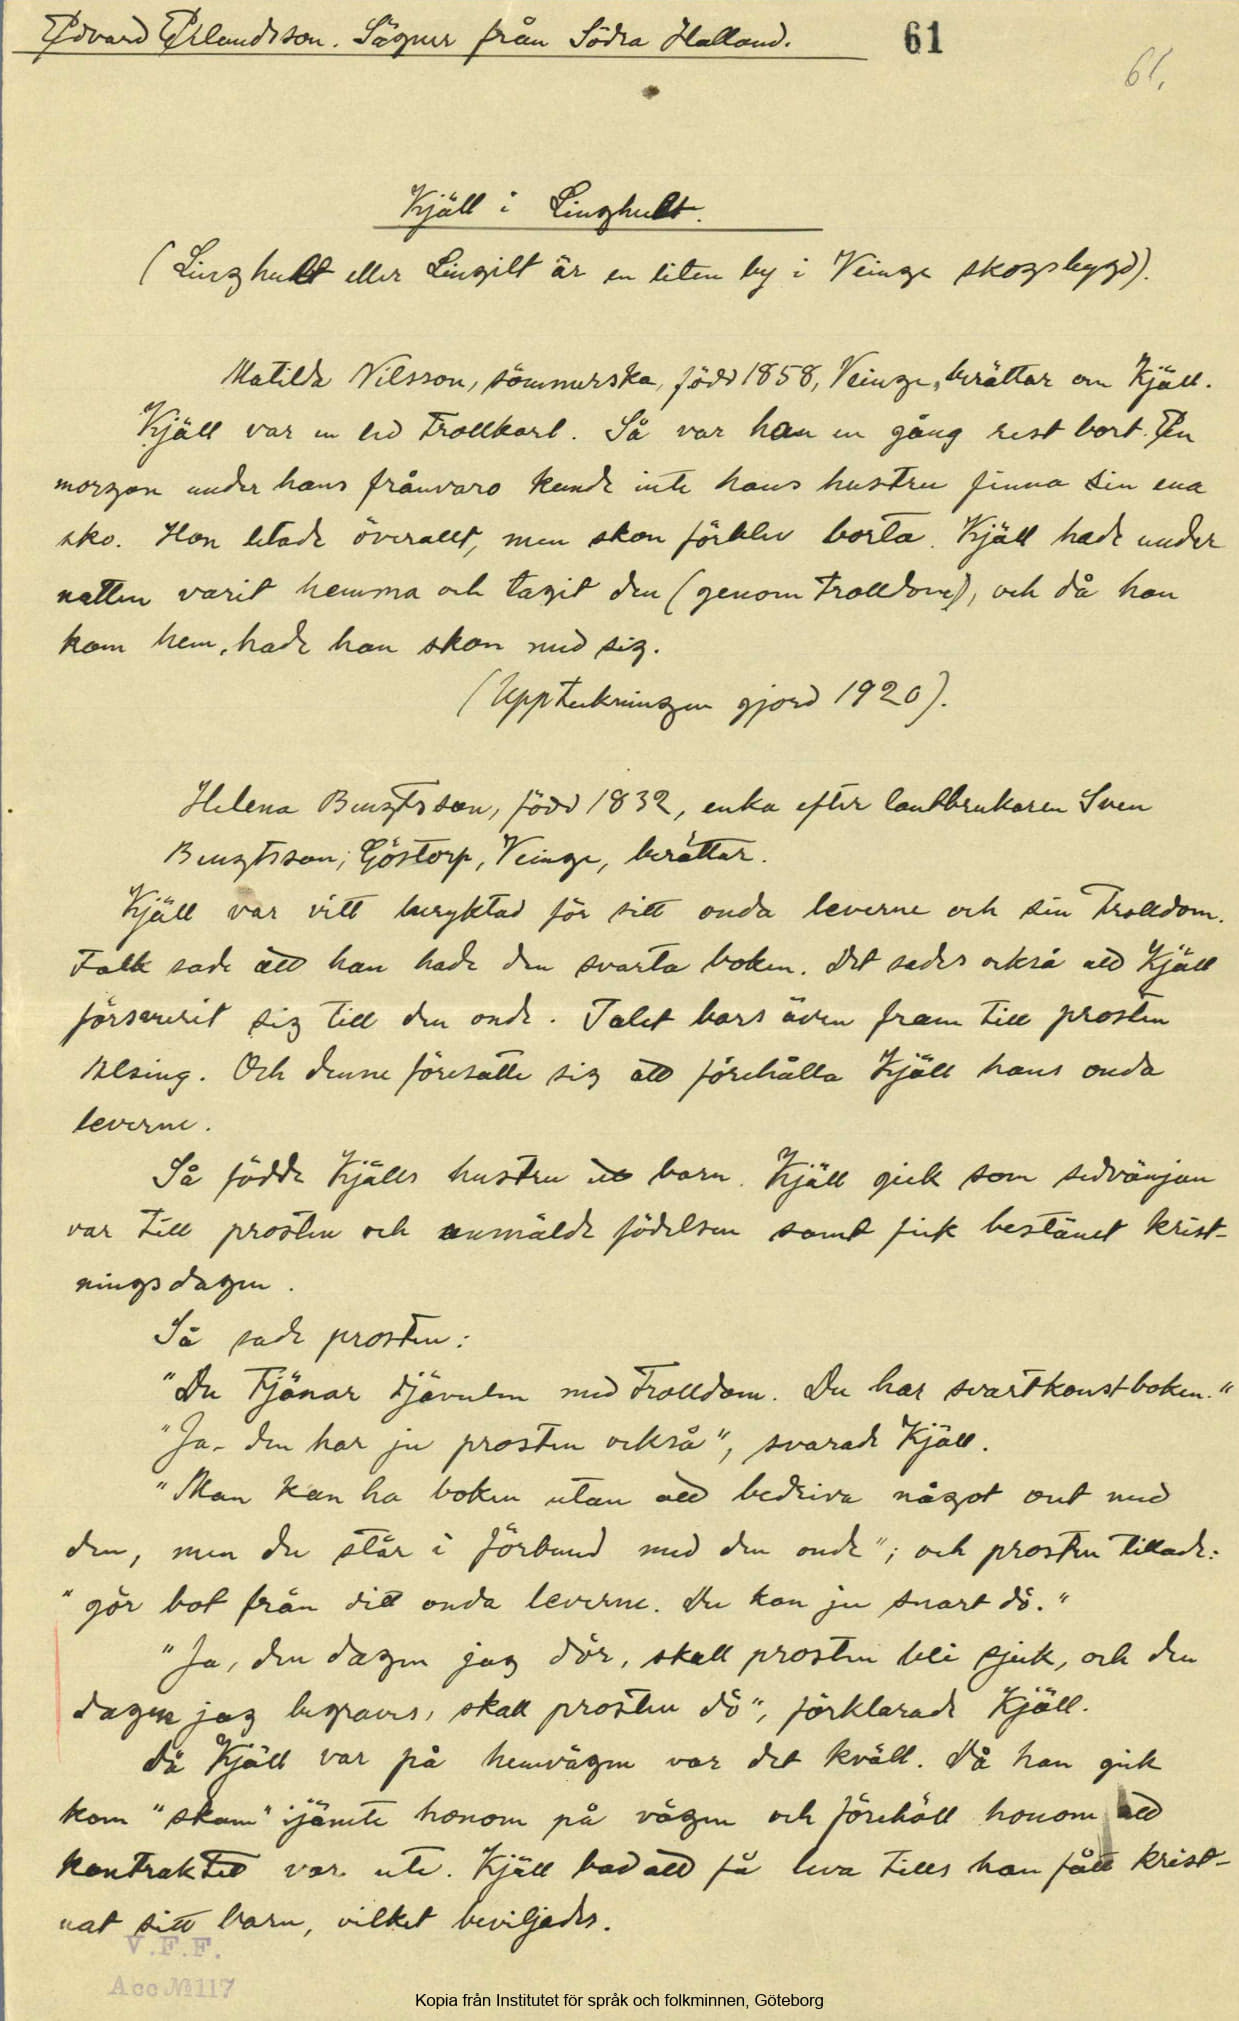 Edvard Erlandsson. Sägner från Södra Halland.
61
61.
Kjäll i Linghult.
(Linghult eller Lingilt är en liten by i Veinge skogsbygd).
Matilda Nilsson, sömmerska, född 1858, Veinge, berättar om Kjäll.
Kjäll var en led trollkarl. Så var han en gång rest bort. En
morgon under hans frånvaro kunde inte hans hustru finna sin ena
sko. Hon letade överallt, men skon förblev borta. Kjäll hade under
natten varit hemma och tagit den (genom trolldom), och då han
kom hem, hade han skon med sig.
(Uppteckningen gjord 1920).
Helena Bengtsson, född 1832, enka efter lantbrukaren Sven
Bengtsson, Göstorp, Veinge, berättar.
Kjäll var vitt beryktad för sitt onda leverne och sin trolldom.
Folk sade att han hade den svarta boken. Det sades också att Kjäll
försvurit sig till den onde. Talet bars även fram till prosten
Alsing. Och denne föresatte sig att förehålla Kjäll hans onda
leverne.
Så födde Kjälls hustru ett barn. Kjäll gick som sedvänjan
var till prosten och anmälde födelsen samt fick bestämt krist-
ningsdagen.
Så sade prosten:
"Du tjänar djävulen med trolldom. Du har svartkonstboken."
"Ja, den har ju prosten också", svarade Kjäll.
"Man kan ha boken utan att bedriva något ont med
den, men du står i förbund med den onde"; och prosten tillade:
"gör bot från ditt onda leverne. Du kan ju snart dö."
"Ja, den dagen jag dör, skall prosten bli sjuk, och den
dagen jag begraves, skall prosten dö", förklarade Kjäll.
Då Kjäll var på hemvägen var det kväll. Då han gick
kom "skam" jämte honom på vägen och förehöll honom att
kontraktet var ute. Kjäll bad att få leva tills han fått krist-
nat sitt barn, vilket beviljades.
V.F.F.
Acc № 117
Kopia från Institutet för språk och folkminnen, Göteborg